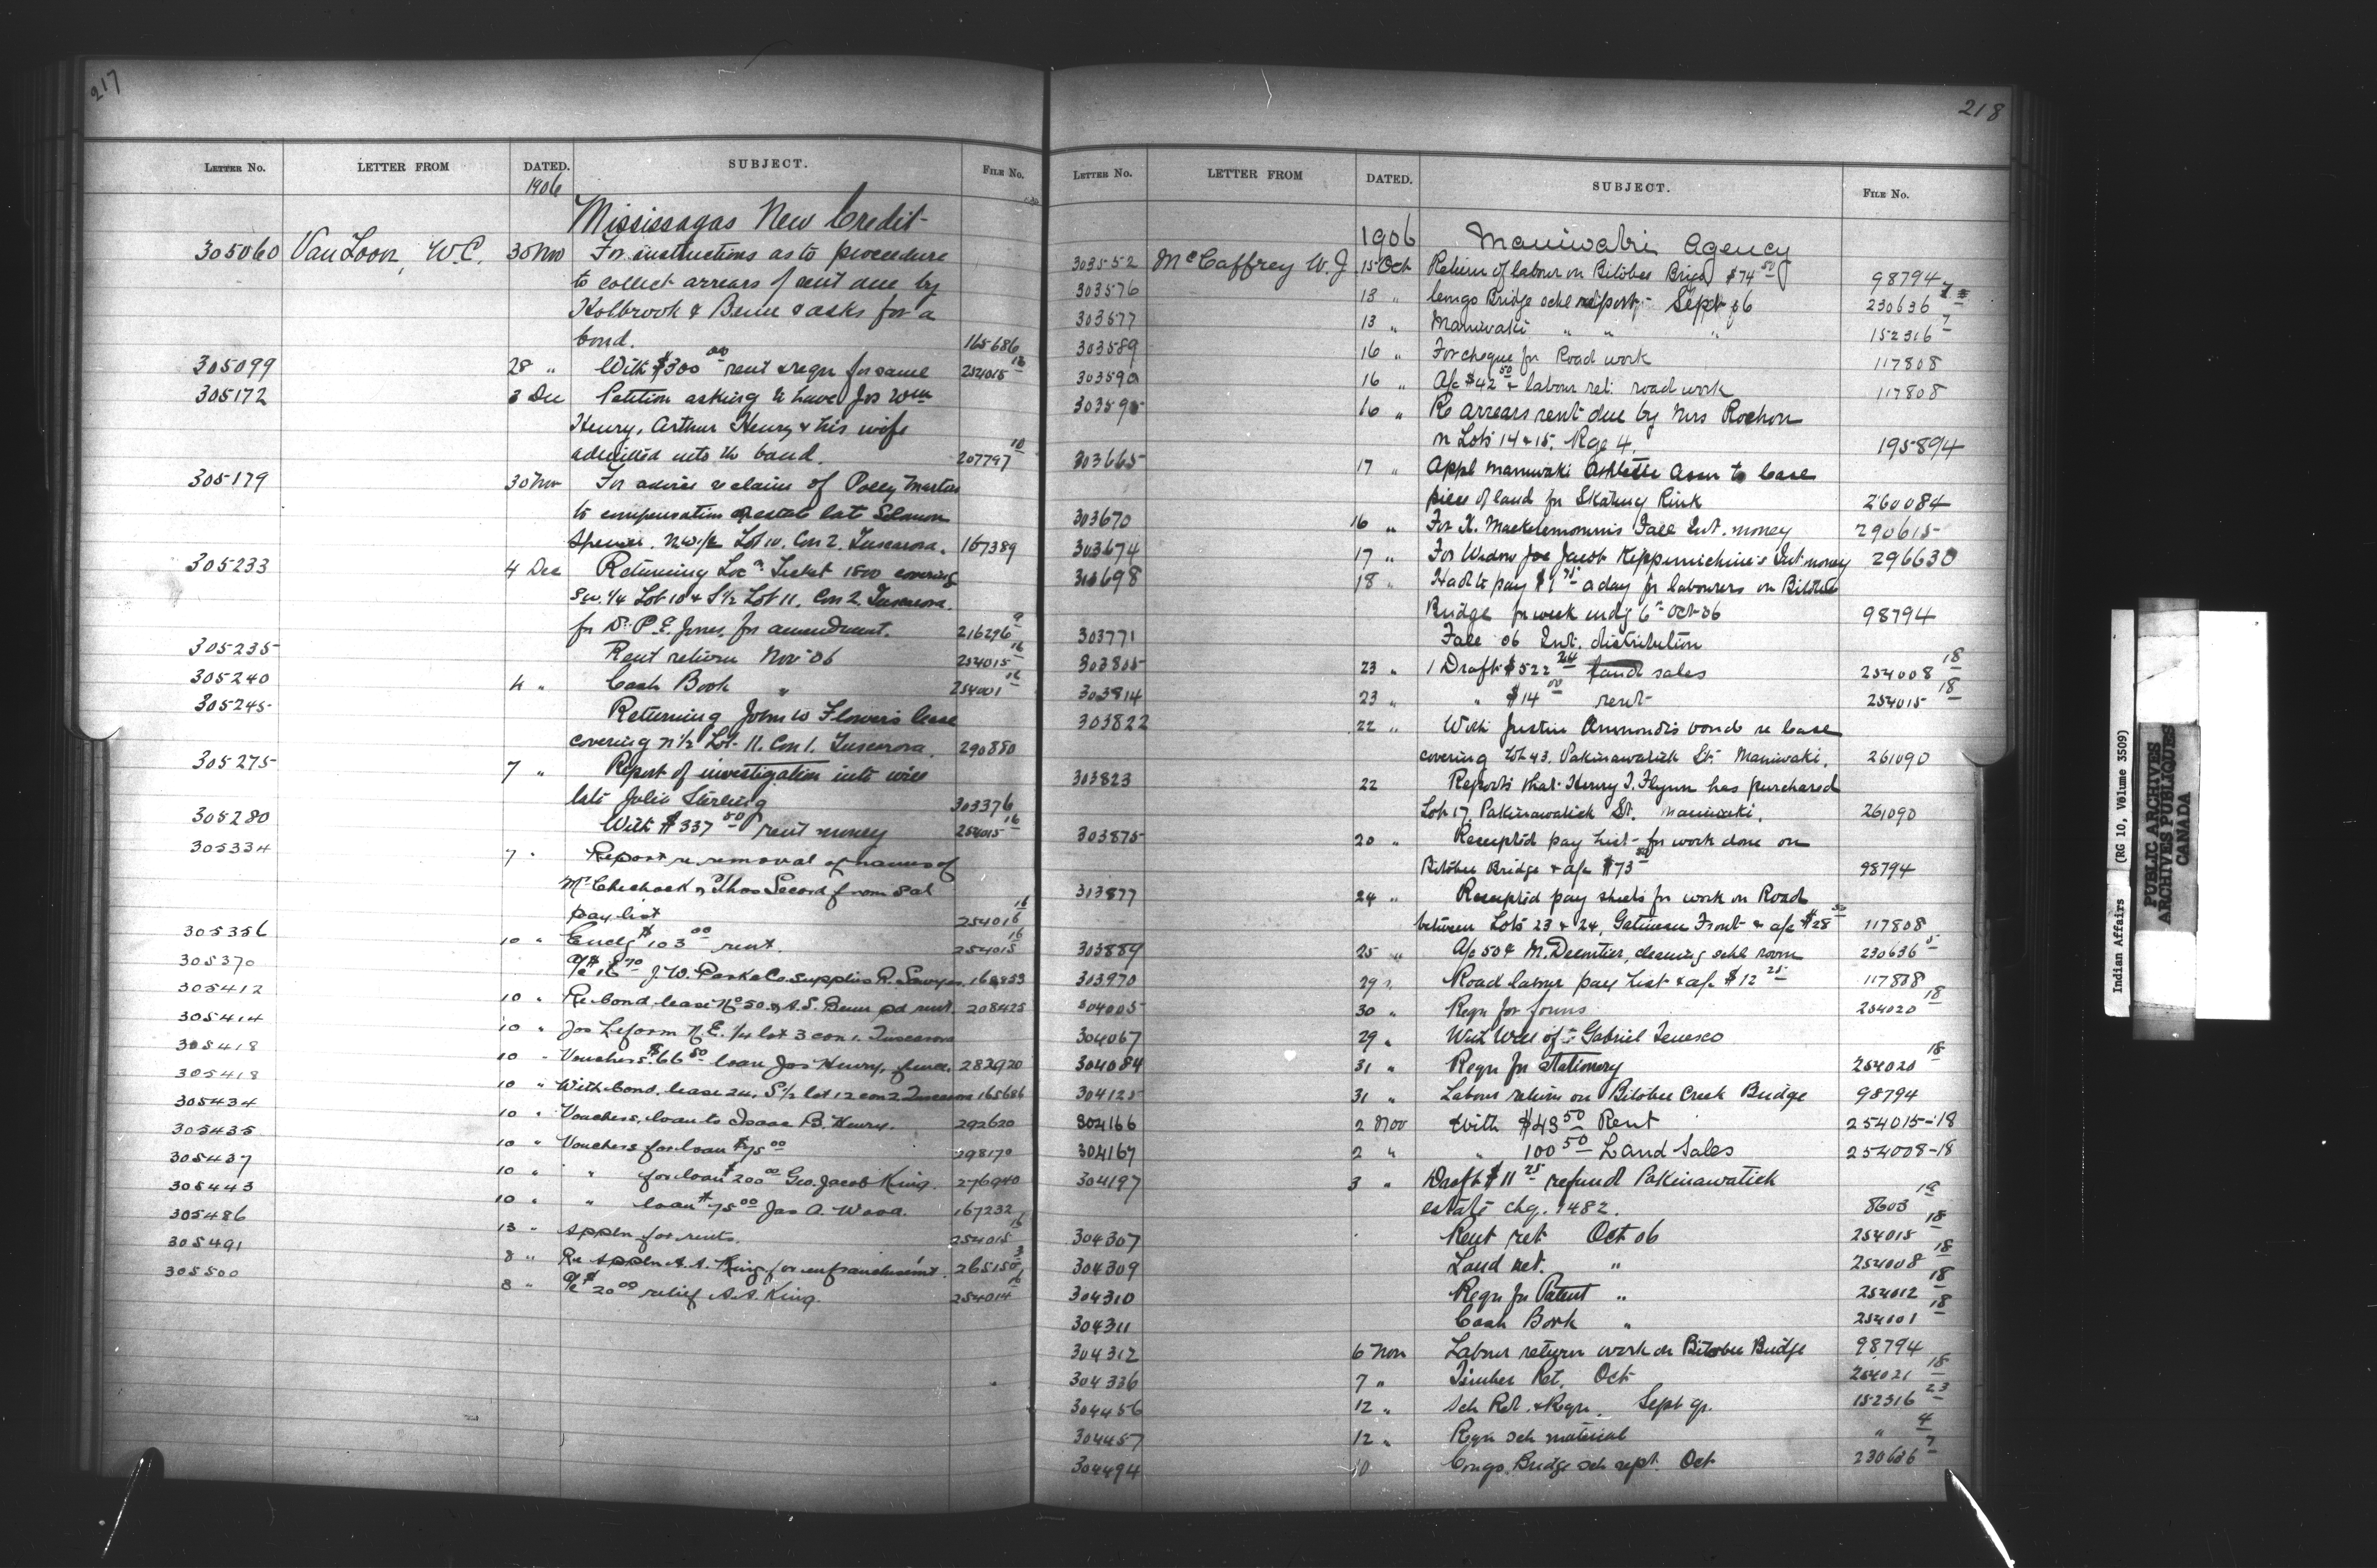 217
LETTER NO. LETTER FROM DATED. SUBJECT. FILE NO.
1906
Mississagas New Credit
305060 Van Loon, W.C. 30 Nov For instructions as to procedure
to collect arrears of rent due by
Holbrook & Beme & asks for a
bond. 165686
305099 28 " With $300 00 rent & reqn for same 254015 16
305172 3 Dec Petition asking to have Jos Wm
Henry, Arthur Henry & his wife
admitted into the band. 207797 10
305179 30 Nov For advice re claim of Polly Martin
to compensation estate late Solomon
Spencer. N.W. 1/2 Lot 10. Con 2. Tuscarora. 167389
305233 4 Dec Returning Loc n Ticket 1500 covering
S.W. 1/4 Lot 10 & S 1/2 Lot 11. Con 2. Tuscarora.
for Dr P.E. Jones for amendment. 216296 9
305235 Rent return Nov 06 254015 16
305240 4 " Cash Book " 254001 16
305245 Returning John W Flowers lease
covering N 1/2 Lot 11. Con 1. Tuscarora. 290880
305275 7 " Report of investigation into will
late Julia Sterling 303376
305280 With $337 50 rent money 254015 16
305334 7 " Report re removal of names of
Mr Chechock & Thos Secord from Sal
pay list 254016 16
305356 10 " Encls $103 00 rent. 254015 16
305370 a/c $16 70 J.W. Park & Co. supplies R. Sawyer.
305412 10 " Re bond lease No 50 A.S. Beme pd rent. 208425
305414 10 " Jos Leform N.E. 1/4 lot 3 con 1. Tuscarora
305418 10 " Vouchers $66 50 loan Jos Henry, fence. 282920
305418 10 " With bond. lease 24, S 1/2 lot 12 con 2 Tuscarora 165686
305434 10 " Vouchers, loan to Isaac B. Henry. 292620
305435 10 " Vouchers for loan $75 00 298170
305437 10 " " for loan $200 00 Geo. Jacob King. 276940
305443 10 " " loan $75 00 Jas A. Wood. 167232
305486 13 " Appln for rents. 254015 16
305491 8 " Re appln A.A. King for enfranchisement. 265150 3
305500 8 " a/c $20 00 relief A.A. King. 254014 16
218
LETTER NO. LETTER FROM DATED. SUBJECT. FILE NO.
1906 Maniwaki Agency
303552 McCaffrey W.J 15 Oct Return of labour on Bitobee Bridge $74 50 98794
303576 13 " Congo Bridge schl report - Sept 06 230636 7
303577 13 " Maniwaki " " " 152316 7
303589 16 " For cheque for Road work 117808
303590 16 " A/c $42 50 & labour ret. road work 117808
16 " Re arrears rent due by Mrs Rochon
n Lots 14 & 15. Rge 4. 195894
303665 17 " Appl Maniwaki Athletic Assn to lease
piece of land for Skating Rink 260084
303670 16 " For K. Fall Int. money 290615
303674 17 " For Widow Joe Jacob Int money 296630
303698 18 " Had to pay $1 75 a day for labourers on Bitobee
Bridge for week endg 6th Oct 06 98794
303771 Fall 06 Int. distribution
303805 23 " 1 Draft $522 24 land sales 254008 18
303814 23 " " $14 00 rent 254015 18
303822 22 " With Justin Ammondis bond re lease
covering Lot 43. Pakinawatick St. Maniwaki. 261090
303823 22 Reports that Henry T. Flynn has purchased
Lot 17. Pakinawatick St. Maniwaki. 261090
303875 20 " Receipted pay list for work done on
Bitobee Bridge & a/c $73 50 98794
303877 24 " Receipted pay sheets for work on Road
between Lots 23 & 24, Gatineau Front & a/c $28 50 117808
303889 25 " A/c 50¢ M. cleaning schl room 230636 5
303970 29 " Road labour pay list & a/c $12 25 117808
304005 30 " Reqn for forms 254020 18
304067 29 " With Will of Gabriel Tenesco
304084 31 " Reqn for Stationery 254020 18
304125 31 " Labour return on Bitobee Creek Bridge 98794
304166 2 Nov With $43 50 Rent 254015-18
304167 2 " " 100 50 Land Sales 254008-18
304197 3 " Draft $11 25 refund Pakinawatick
estate chq. 1482. 8603 19
304307 Rent ret Oct 06 254015 18
304309 Land ret. " 254008 18
304310 Reqn for Patent " 254012 18
304311 Cash Book " 254001 18
304312 6 Nov Labour return work on Bitobee Bridge 98794
304336 7 " Timber Ret. Oct 254021 18
304456 12 " Sch Ret. & Reqn. Sept qr. 152316 23
304457 12 " Reqn sch material " 4
304494 10 Congo Bridge sch rept. Oct 230636 7
Indian Affairs (RG 10, Volume 3509)
PUBLIC ARCHIVES
ARCHIVES PUBLIQUES
CANADA